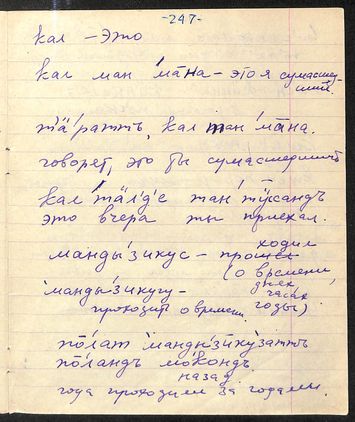 -247-
кал - это
кал ман ма̄на - это я сумасшед-
ший.
тӓратть, кал тан ма̄на.
говорят, это ты сумасшедший
кал тӓл'д'е тан тӱсандъ
это вчера ты приехал.
мандызикус - прошел
ходил
(о времени,
днях,
часах
годы)
мандызикугу -
проходит о времени.
полат мандызикузатть
поландъ мокондъ
назад
года проходили за годами.